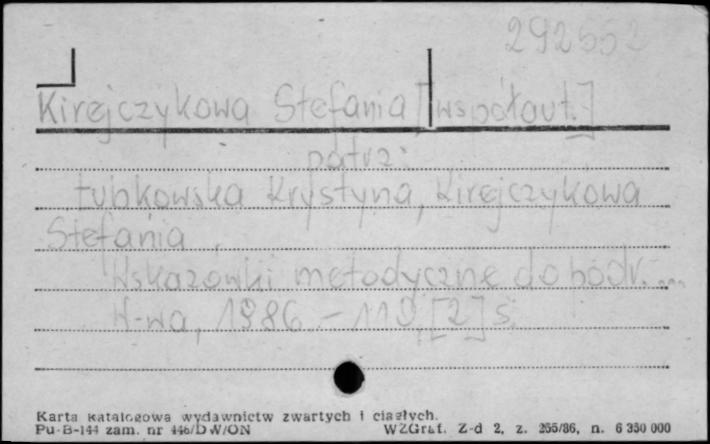 292552
Kirejczykowa Stefania [współaut.]
patrz:
Łubkowska Krystyna, Kirejczykowa
Stefania,
Wskazówki metodyczne do podr. ...
W-wa, 1986. - 119, [2] s.
Karta katalogowa wydawnictw zwartych i ciągłych.
Pu-B-144 zam. nr 446/DW/ON WZGraf. Z-d 2, z. 255/86, n. 6 350 000